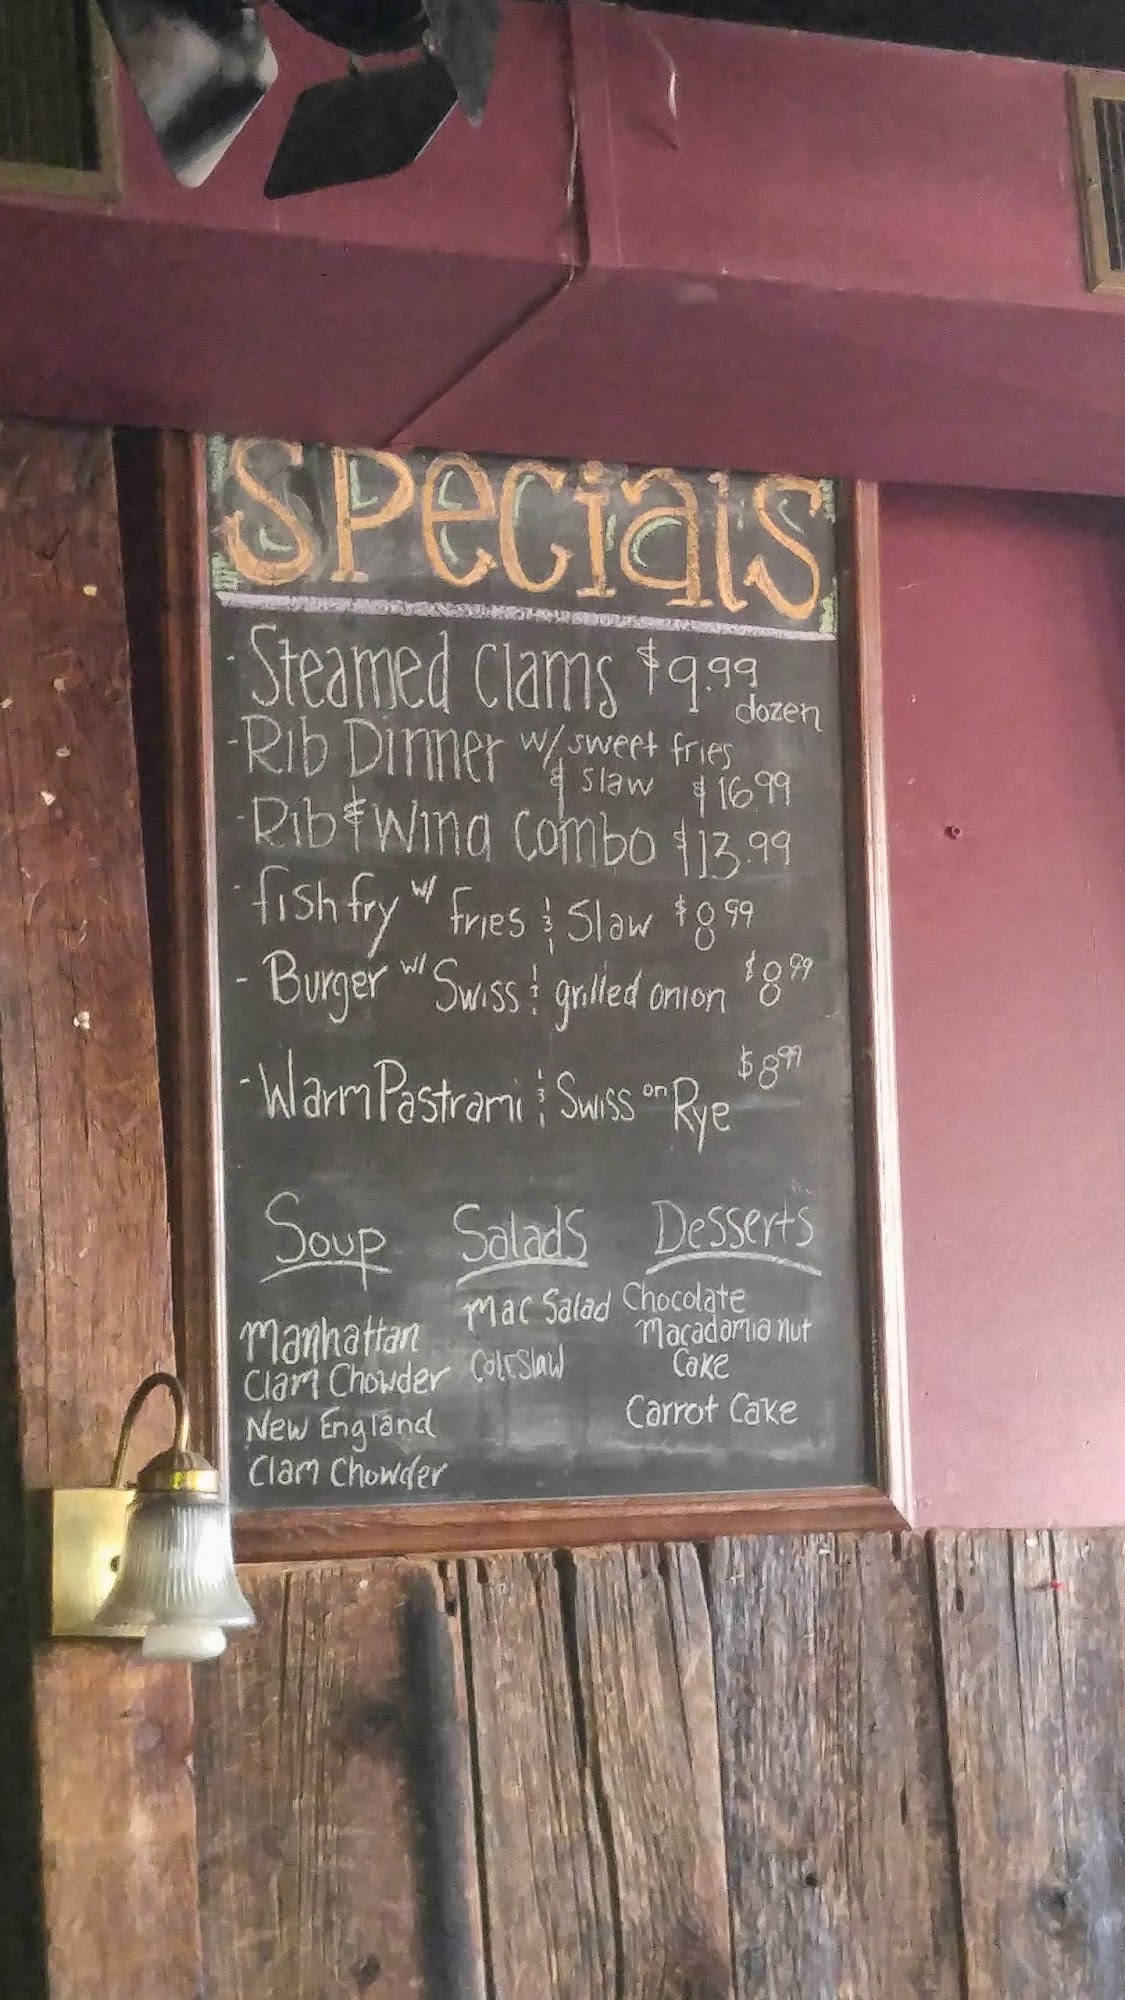 Specials
- Steamed Clams $9.99
dozen
- Rib Dinner w/ sweet fries
& slaw $16.99
- Rib & Wing Combo $13.99
- fish fry w/ fries & Slaw $8.99
- Burger w/ Swiss & grilled onion $8.99
- Warm Pastrami & Swiss on Rye $8.99
Soup
Manhattan
Clam Chowder
New England
Clam Chowder
Salads
Mac Salad
Coleslaw
Desserts
Chocolate
Macadamia nut
Cake
Carrot Cake